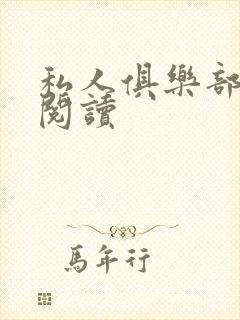 私人俱樂部
閱讀
馬年行